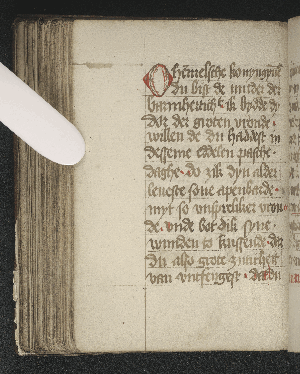 O hemelsche konyngynne
du bist de muder der
barmherticheyt ik bydde dy
dor der groten vronde
willen de du haddest in
desseme eddelen pasche
daghe do zik dyn alder
leueste sone apenbarde
myt so vnspreliker vrou
de vnde bot dik syne
wunden to kussende dar
du also grote zuticheit
van vntfengest